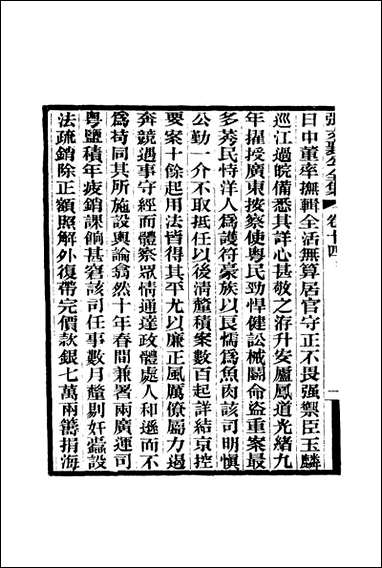 張文襄公全集 卷十四 一
日中董率撫輯全活無算居官守正不畏强禦臣玉麟
巡江過皖備悉其詳心甚敬之洊升安廬鳳道光緒九
年擢授廣東按察使粵民勁悍健訟械鬭命盜重案最
多莠民恃洋人爲護符豪族以良懦爲魚肉該司明慎
公勤一介不取抵任以後清釐積案數百起詳結京控
要案十餘起用法皆得其平尤以廉正風厲僚屬力遏
奔競遇事守經而體察眾情通達政體處人和遜而不
爲苟同其所施設輿論翕然十年春間兼署兩廣運司
粵鹽積年疲銷課餉甚窘該司任事數月釐剔奸蠹設
法疏銷除正額照解外復帶完價款銀七萬兩籌捐海